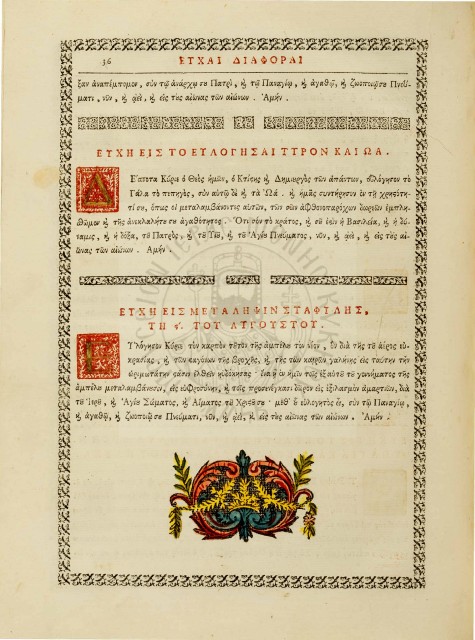 36 ΕΥΧΑΙ ΔΙΑΦΟΡΑΙ
ξαν ἀναπέμπομεν, σὺν τῷ ἀνάρχῳ σου Πατρὶ, ϗ τῷ Παναγίῳ, ϗ ἀγαθῷ, ϗ ζωοποιῷ σου Πνεύ-
ματι, νῦν, ϗ ἀεὶ, ϗ εἰς τοὺς αἰῶνας τῶν αἰώνων. Ἀμήν.
ΕΥΧΗ ΕΙΣ ΤΟ ΕΥΛΟΓΗΣΑΙ ΤΥΡΟΝ ΚΑΙ ΩΑ.
Δέσποτα Κύριε ὁ Θεὸς ἡμῶν, ὁ Κτίστης ϗ Δημιουργὸς τῶν ἁπάντων, εὐλόγησον τὸ
Γάλα τὸ πεπηγὸς, σὺν αὐτῷ δὲ ϗ τὰ Ὠά. ϗ ἡμᾶς συντήρησον ἐν τῇ χρηστότη-
τί σου, ὅπως οἱ μεταλαμβάνοντες αὐτῶν, τῶν σῶν ἀφθονοπαρόχων δωρεῶν ἐμπλη-
θῶμεν ϗ τῆς ἀνεκλαλήτου σου ἀγαθότητος. Ὅτι σὸν τὸ κράτος, ϗ σοῦ ἐστιν ἡ Βασιλεία, ϗ ἡ δύ-
ναμις, ϗ ἡ δόξα, τοῦ Πατρὸς, ϗ τοῦ Υἱοῦ, ϗ τοῦ Ἁγίου Πνεύματος, νῦν, ϗ ἀεὶ, ϗ εἰς τοὺς αἰ-
ῶνας τῶν αἰώνων. Ἀμήν.
ΕΥΧΗ ΕΙΣ ΜΕΤΑΛΗΨΙΝ ΣΤΑΦΥΛΗΣ,
ΤΗ ϛ΄. ΤΟΥ ΑΥΓΟΥΣΤΟΥ.
Εὐλόγησον Κύριε τὸν καρπὸν τοῦτον τῆς ἀμπέλου τὸν νέον, ὃν διὰ τῆς τοῦ ἀέρος εὐ-
κρασίας, ϗ τῶν σταγόνων τῆς βροχῆς, ϗ τῆς τῶν καιρῶν γαλήνης εἰς ταύτην τὴν
ὡριμωτάτην στάσιν ἐλθεῖν ηὐδόκησας· ἵνα ᾖ ἐν ἡμῖν τοῖς ἐξ αὐτοῦ τοῦ γεννήματος τῆς
ἀμπέλου μεταλαμβάνουσιν, εἰς εὐφροσύνην, ϗ τοῖς προσενέγκασι δῶρον εἰς ἐξιλασμὸν ἁμαρτιῶν, διὰ
τοῦ Ἱεροῦ, ϗ Ἁγίου Σώματος, ϗ Αἵματος τοῦ Χριστοῦ σου· μεθ᾽ οὗ εὐλογητὸς εἶ, σὺν τῷ Παναγίῳ,
ϗ ἀγαθῷ, ϗ ζωοποιῷ σου Πνεύματι, νῦν, ϗ ἀεὶ, ϗ εἰς τοὺς αἰῶνας τῶν αἰώνων. Ἀμήν.